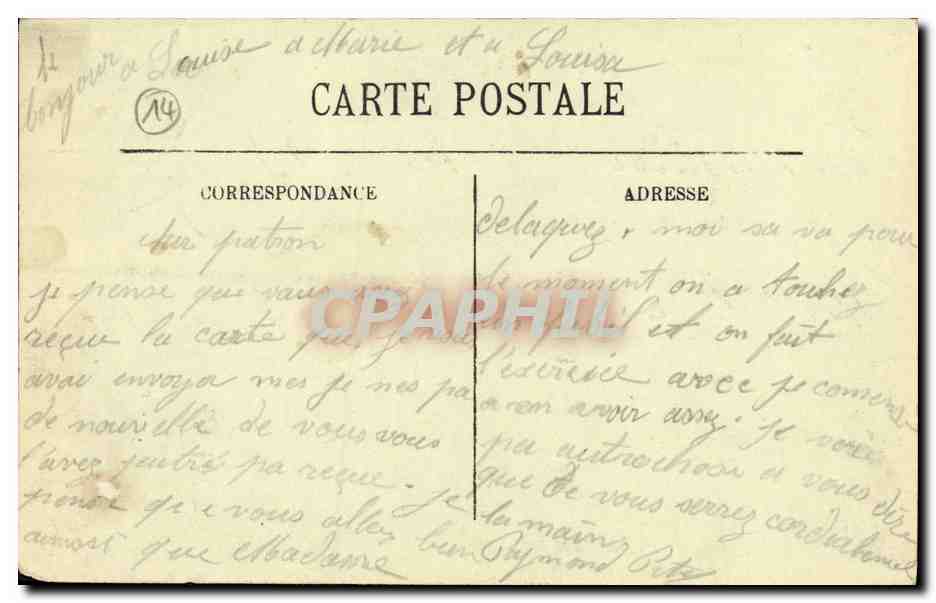 bonjour a Louise a Marie et a Louisa
14
CARTE POSTALE
CORRESPONDANCE
cher patron
je pense que vous avez
reçue la carte que je vous
avai envoya mes je nes pa
de nouvelle de vous vous
l'avez pa reçue. Je
pense que vous allez bien
ainsi que Madame
ADRESSE
moi sa va pour
le moment on a touhez
un fusil et on fait
l'exercice avec je comense
a en avoir assez. Je voi
pa autrochose a vous dire
que de vous serrez cordialement
la main
Raymond
CPAPHIL